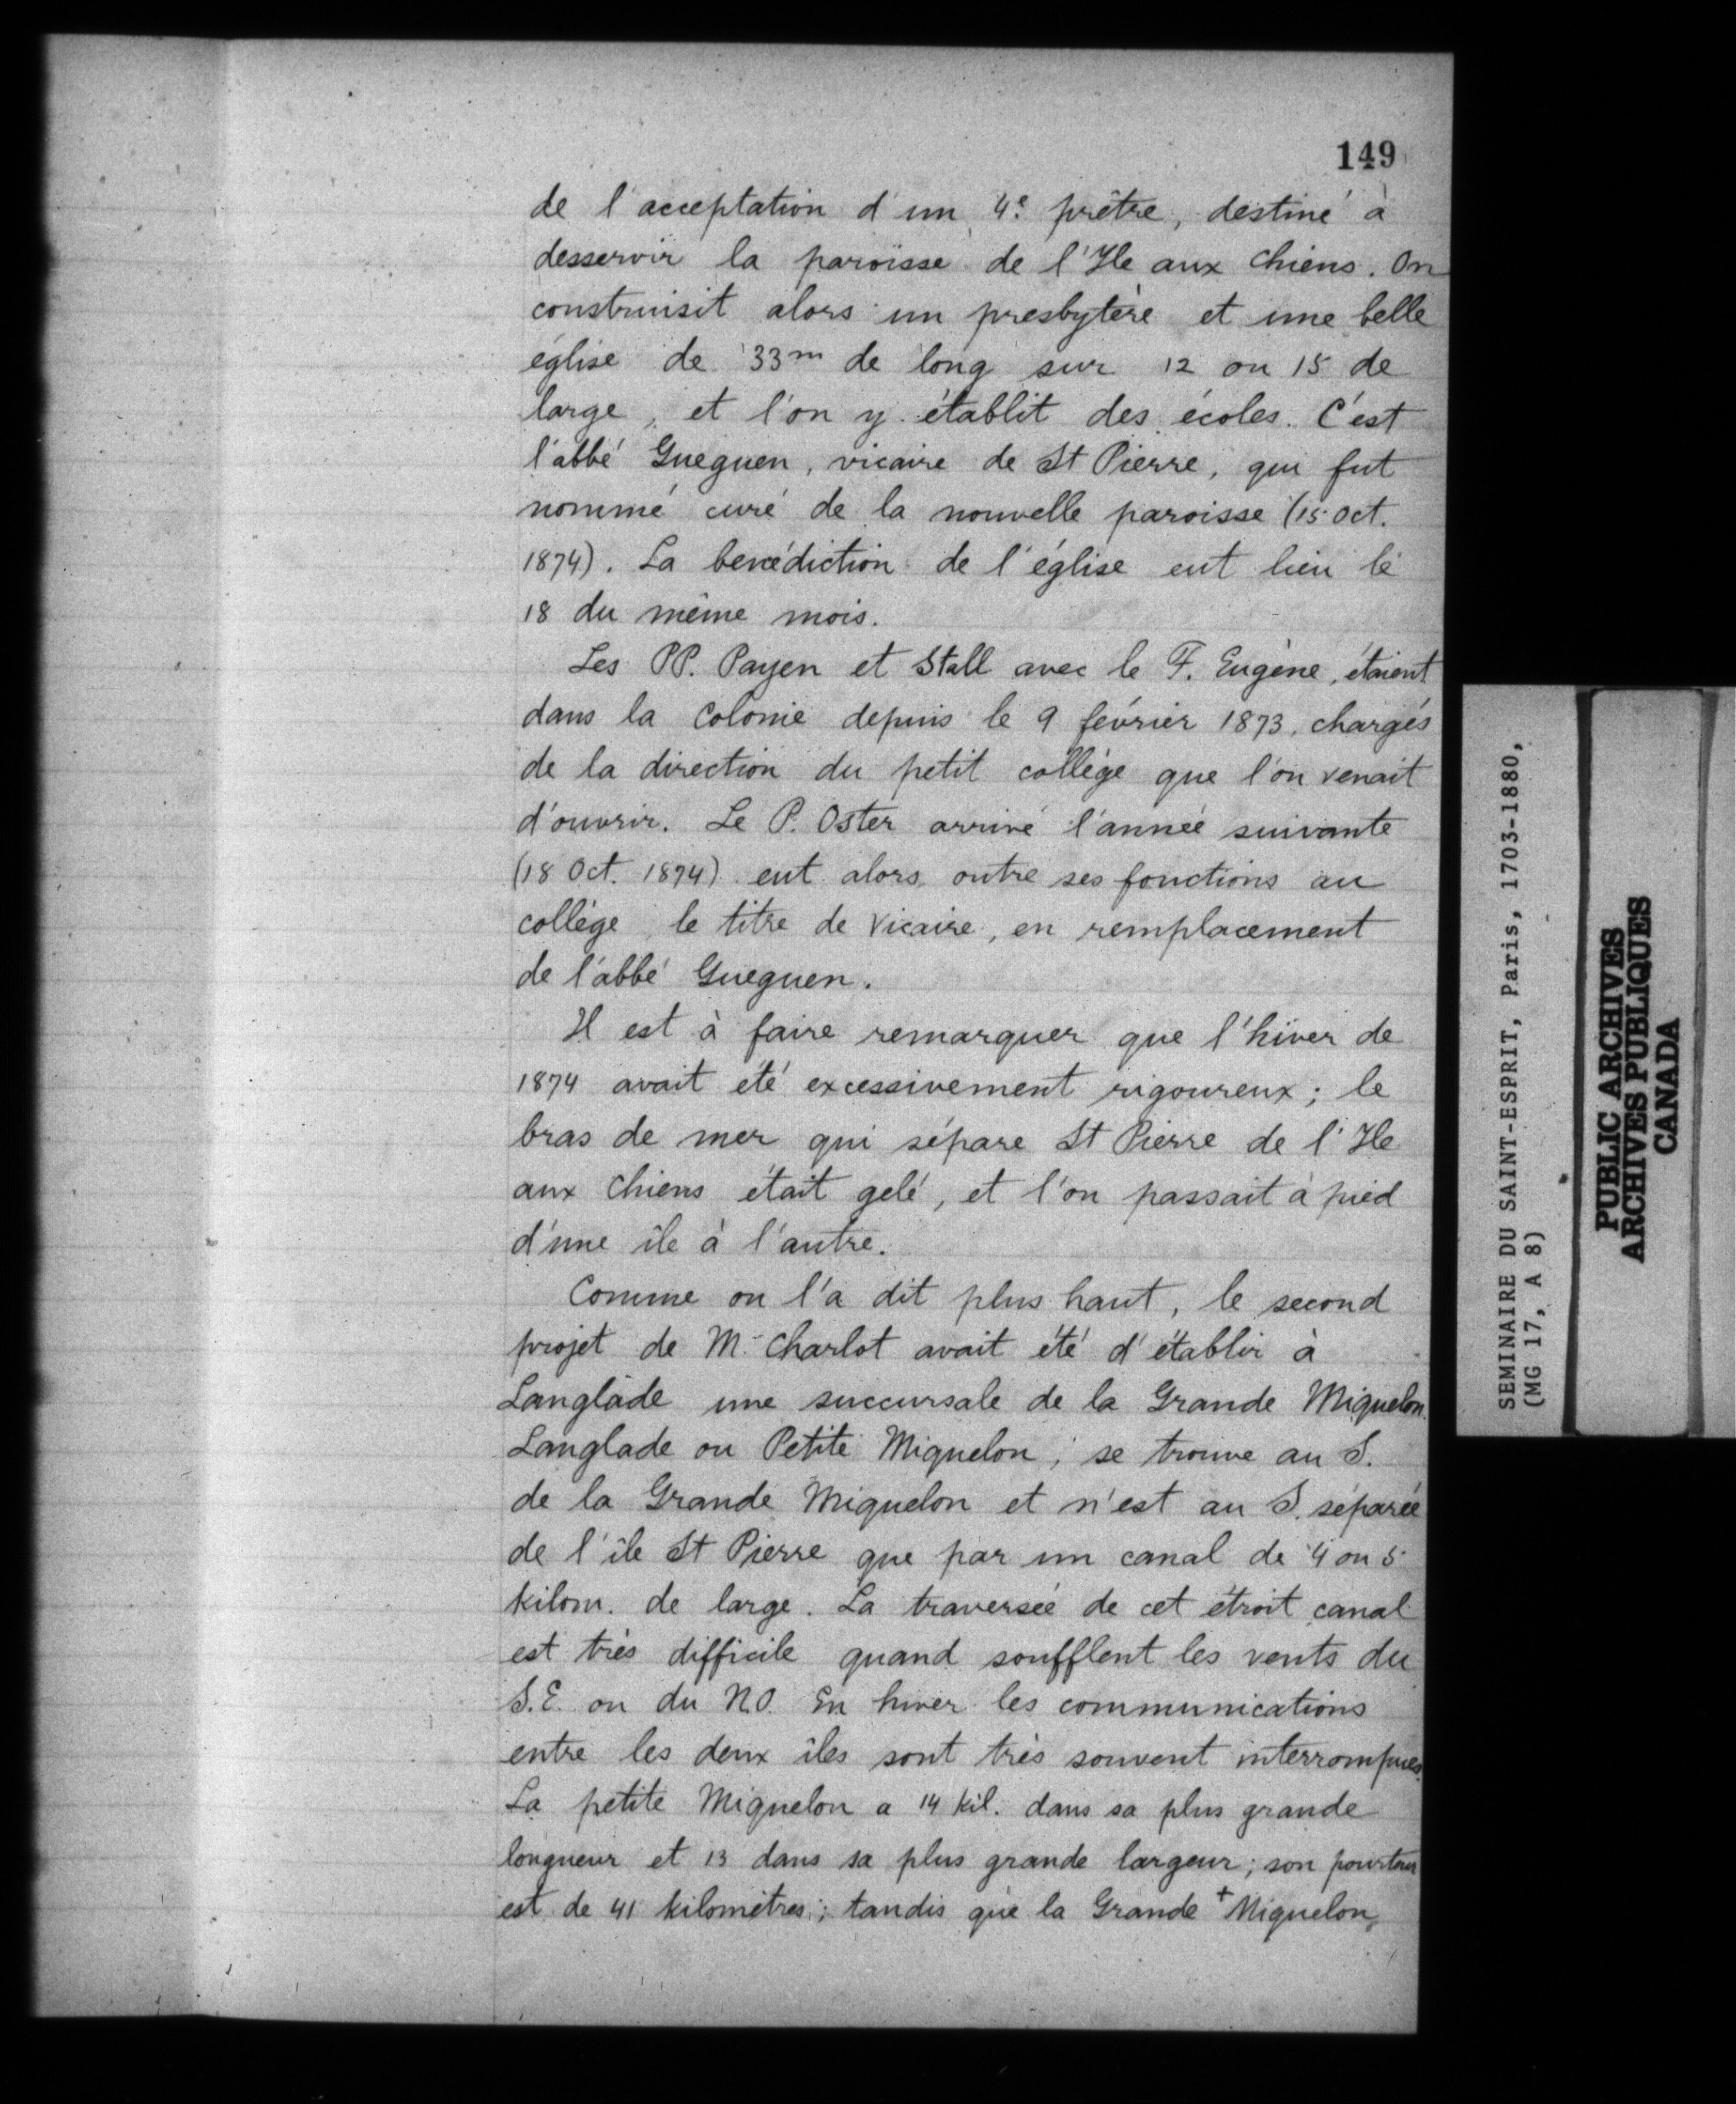 149
de l'acceptation d'un 4e prêtre, destiné à
desservir la paroisse de l'Ile aux Chiens. On
construisit alors un presbytère et une belle
église de 33m de long sur 12 ou 15 de
large, et l'on y établit des écoles. C'est
l'abbé Gueguen, vicaire de St Pierre, qui fut
nommé curé de la nouvelle paroisse (15 Oct.
1874). La bénédiction de l'église eut lieu le
18 du même mois.
Les PP. Payen et Stall avec le F. Eugène, étaient
dans la Colonie depuis le 9 février 1873, chargés
de la direction du petit collège que l'on venait
d'ouvrir. Le P. Oster arrivé l'année suivante
(18 Oct. 1874) eut alors, outre ses fonctions au
collège, le titre de Vicaire, en remplacement
de l'abbé Gueguen.
Il est à faire remarquer que l'hiver de
1874 avait été excessivement rigoureux; le
bras de mer qui sépare St Pierre de l'Ile
aux Chiens était gelé, et l'on passait à pied
d'une île à l'autre.
Comme on l'a dit plus haut, le second
projet de M. Charlot avait été d'établir à
Langlade une succursale de la Grande Miquelon.
Langlade ou Petite Miquelon, se trouve au S.
de la Grande Miquelon et n'est au S. séparée
de l'île St Pierre que par un canal de 4 ou 5
kilom. de large. La traversée de cet étroit canal
est très difficile quand soufflent les vents du
S.E. ou du N.O. En hiver les communications
entre les deux îles sont très souvent interrompues.
La petite Miquelon a 14 kil. dans sa plus grande
longueur et 13 dans sa plus grande largeur; son pourtour
est de 41 kilomètres; tandis que la Grande + Miquelon,
SEMINAIRE DU SAINT-ESPRIT, Paris, 1703-1880,
(MG 17, A 8)
PUBLIC ARCHIVES
ARCHIVES PUBLIQUES
CANADA